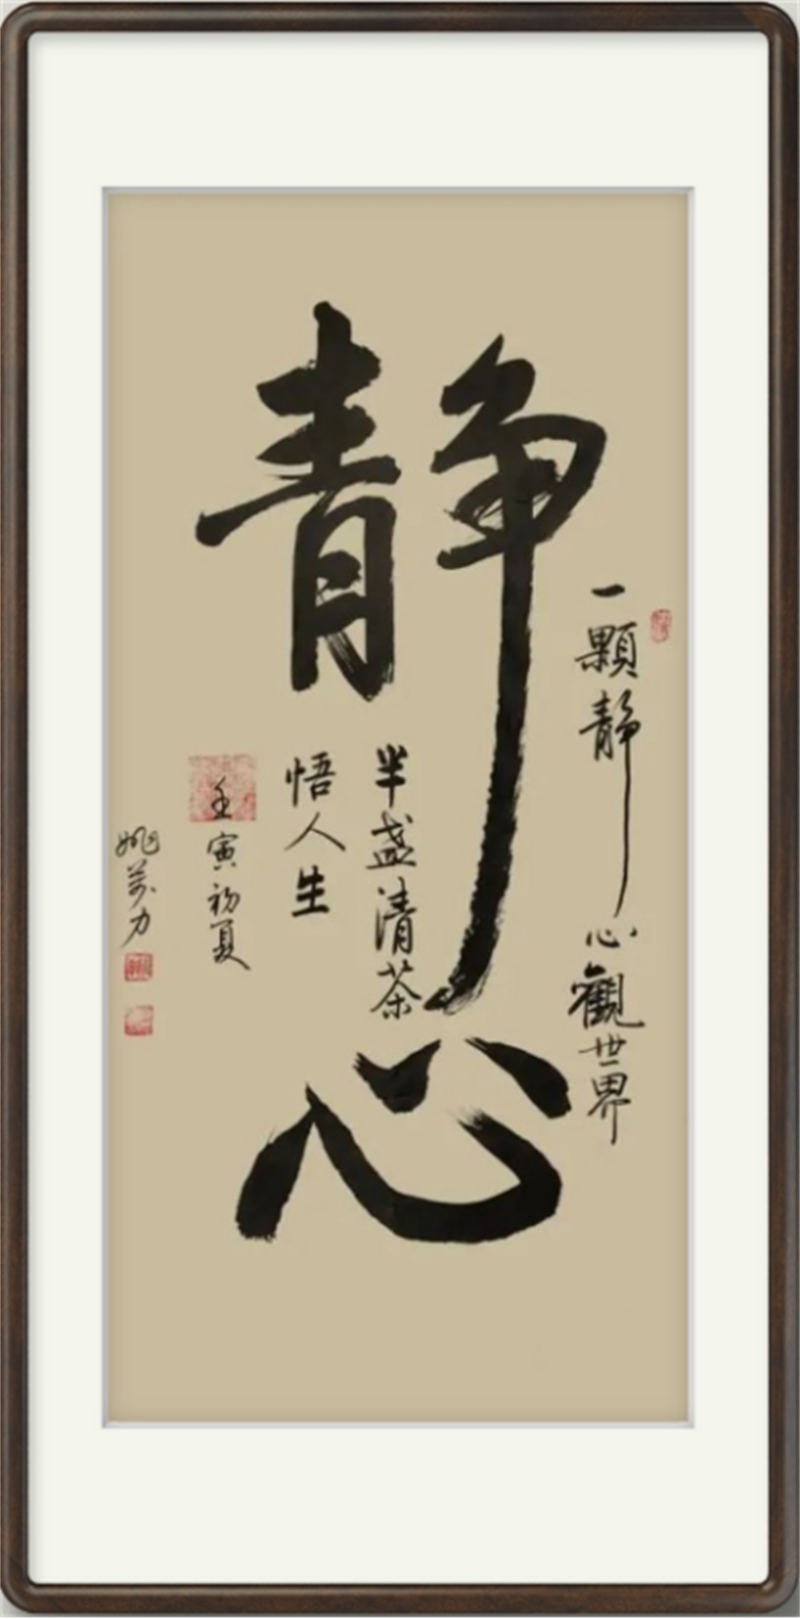 静心
一顆静心觀世界
半盏清茶
悟人生
壬寅初夏
姚萬力